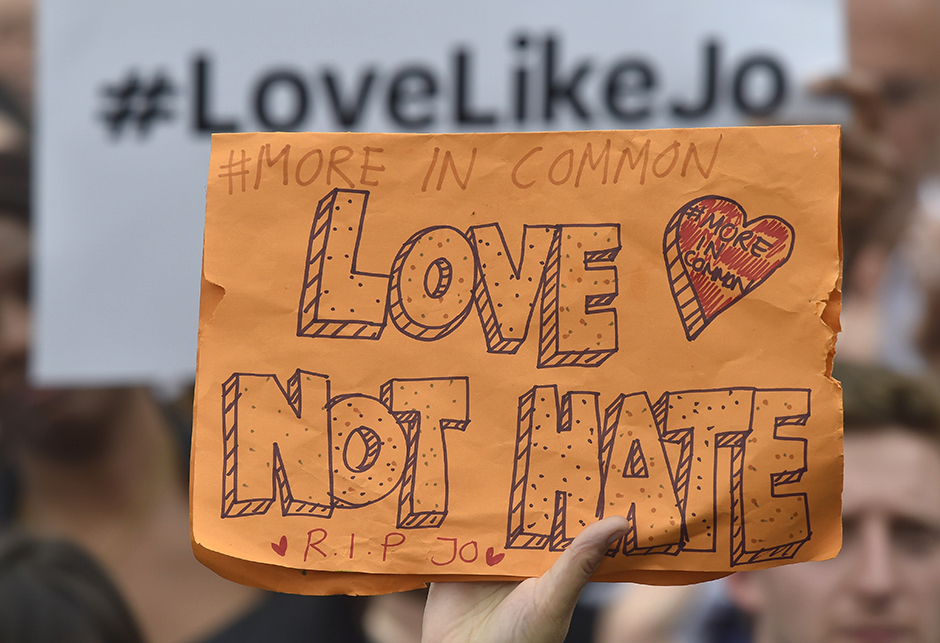 #LoveLikeJo
#MORE IN COMMON
LOVE
#MORE
IN
COMMON
NOT HATE
R.I.P JO